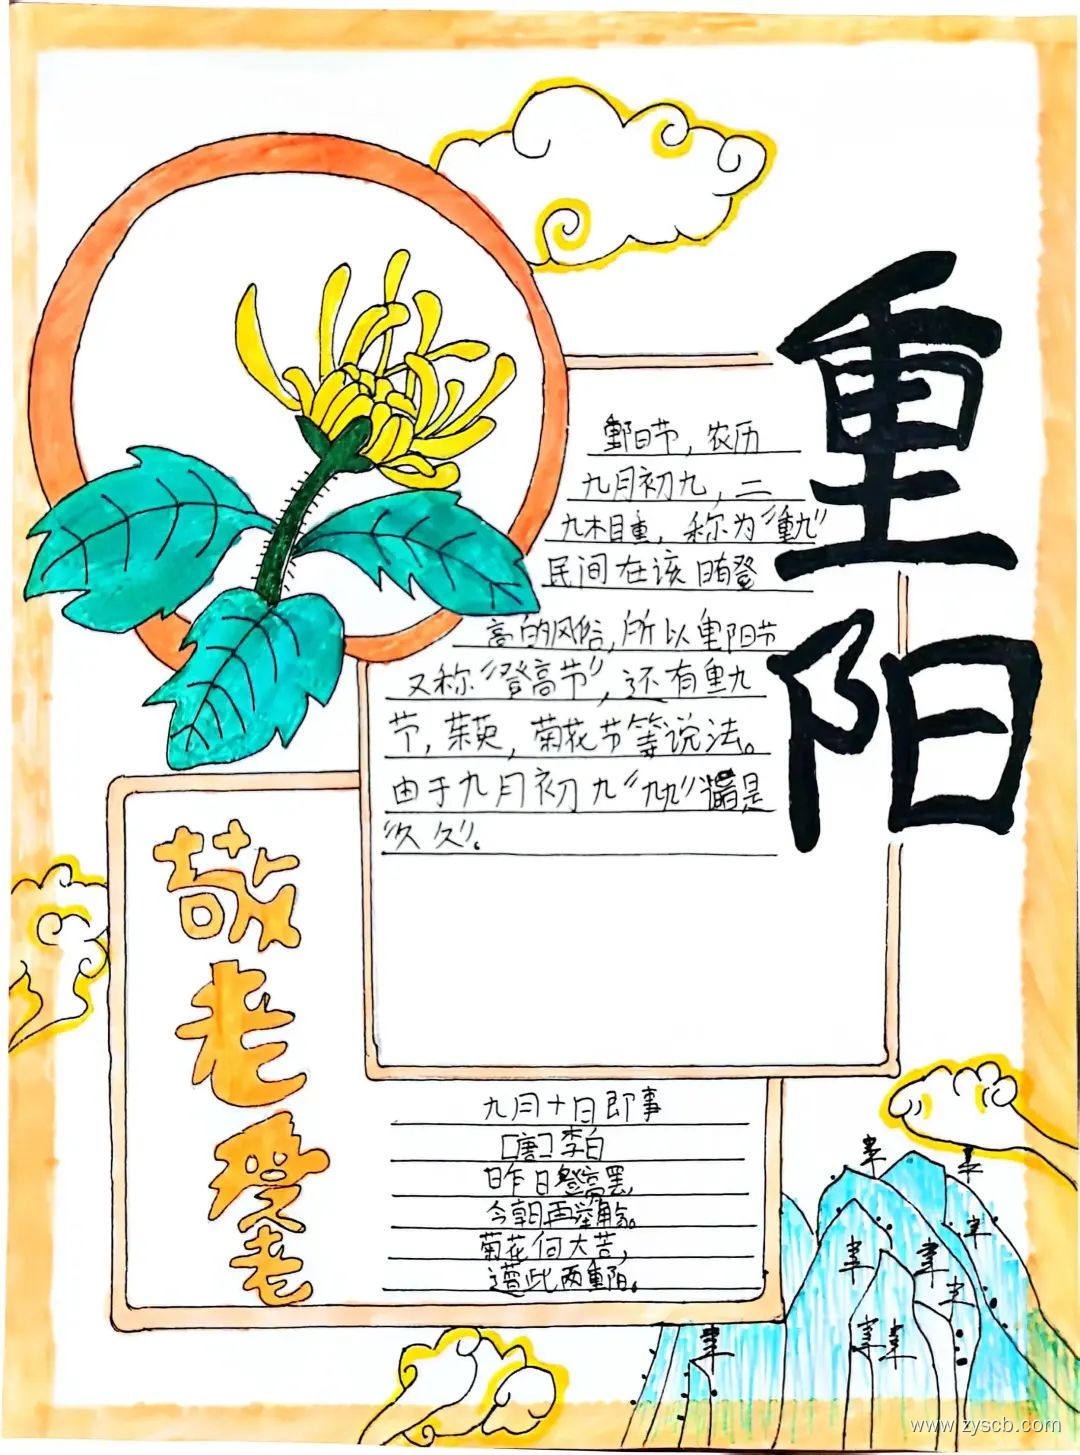 重阳
重阳节，农历
九月初九，二
九木目重，称为“重九”
民间在该日有登
高的风俗，所以重阳节
又称“登高节”，还有重九
节，茱萸，菊花节等说法。
由于九月初九“九九”谐音是
“久久”。
敬老爱老
九月十日即事
[唐]李白
昨日登高罢，
今朝再举觞。
菊花何太苦，
遭此两重阳。
www.zyscb.com